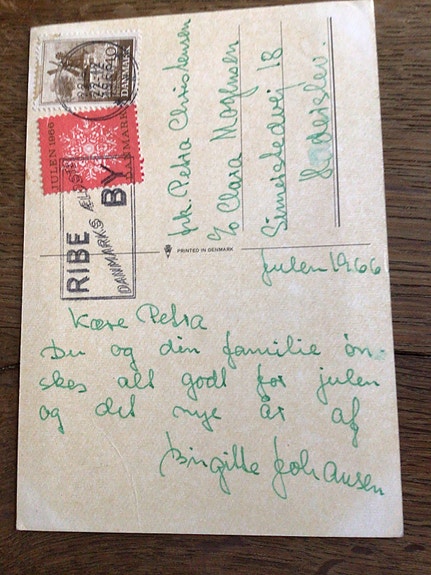 DANMARK
JULEN 1966
DANMARK
RIBE
DANMARKS ÆLDSTE
BY
PRINTED IN DENMARK
frk. Petra Christensen
c/o Clara Mogensen
18
Haderslev.
Julen 1966
Kære Petra
Du og din familie øn-
skes alt godt for julen
og det nye år af
Birgitte Johansen